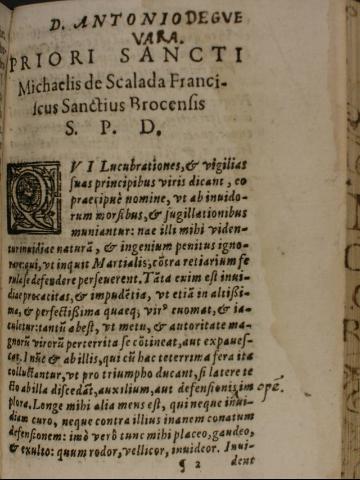 D. ANTONIO DE GVE
VARA.
PRIORI SANCTI
Michaelis de Scalada Franci-
scus Sanctius Brocensis
S. P. D.
QVI Lucubrationes, & vigilias
suas principibus viris dicant, eo
praecipuè nomine, vt ab inuido-
rum morsibus, & sugillationibus
muniantur: nae illi mihi viden-
tur inuidiae naturā, & ingenium penitus igno-
rare: qui, vt inquit Martialis, cōtra retiarium fe
rula se defendere perseuerent. Tāta enim est inui-
diae procacitas, & impudētia, vt etiā in altissi-
ma, & perfectissima quaeq; virº euomat, & ia-
culetur: tantū abest, vt metu, & autoritate ma-
gnorū virorū perterrita se cōtineat, aut expaues-
cat. Inūc & ab illis, qui cū hac teterrima fera ita
colluctantur, vt pro triumpho ducant, si latere te
cto ab illa discedāt, auxilium, aut defensionē im opē.
plora. Longe mihi alia mens est, qui neque inui-
diam curo, neque contra illius inanem conatum
defensionem: imò verò tunc mihi placeo, gaudeo,
& exulto: quum rodor, vellicor, inuideor. Inui-
¶ 2 dent